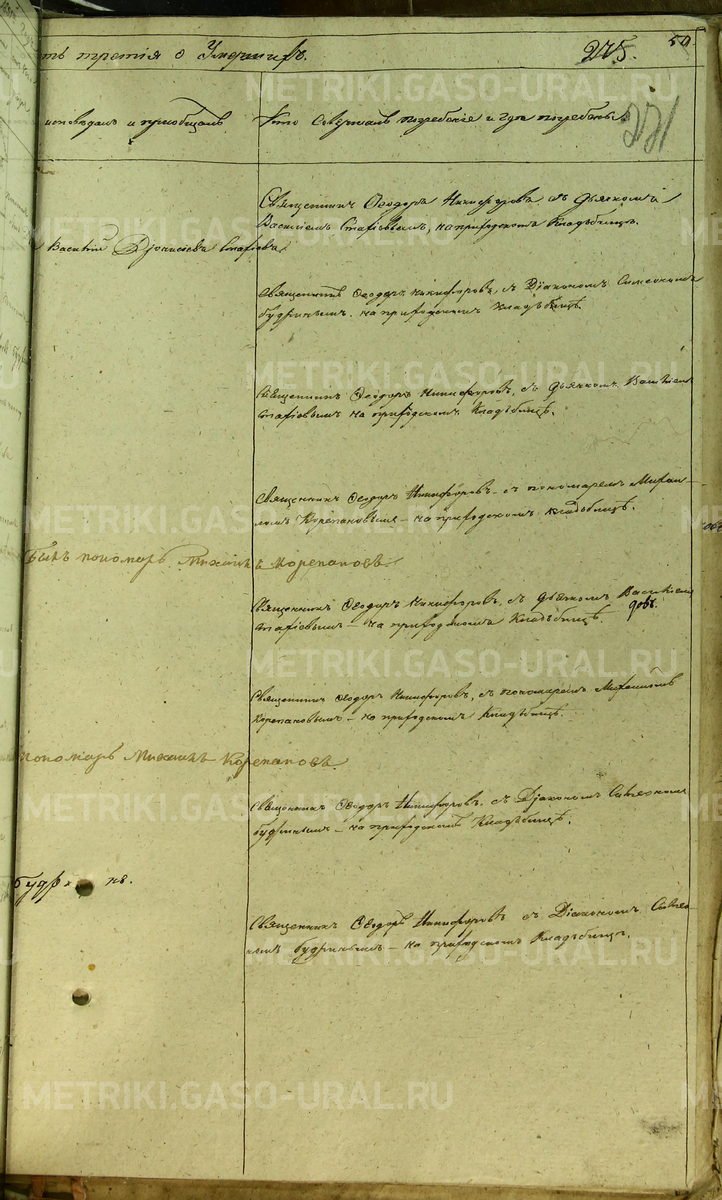 ть третія о Умершихъ. 275. 50
221
исповѣдалъ и пріобщалъ
Кто совершалъ погребеніе и гдѣ погребены
Священникъ Ѳеодоръ Никифоровъ съ дьячкомъ
Василіемъ Стафіевымъ, на приходскомъ кладбищѣ.
Василій Стафіевъ
Священникъ Ѳеодоръ Никифоровъ, съ Діакономъ Симеономъ
Будринымъ. на приходскомъ кладъбищѣ
Священникъ Ѳеодоръ Никифоровъ, съ дьячкомъ Василіемъ
Стафіевымъ на приходскомъ кладъбищѣ.
Священникъ Ѳеодоръ Никифоровъ съ пономаремъ Михаи-
ломъ Корепановымъ – на приходскомъ кладъбищѣ.
пономарь Михаилъ Корепановъ
Священникъ Ѳеодоръ Никифоровъ, съ дьячкомъ Василіемъ
Стафіевымъ – на приходскомъ кладъбищѣ.
Священникъ Ѳеодоръ Никифоровъ, съ пономаремъ Михаиломъ
Корепановымъ – на приходскомъ кладъбищѣ.
пономарь Михаилъ Корепановъ.
Священникъ Ѳеодоръ Никифоровъ, съ Діакономъ Симеономъ
Будринымъ – на приходскомъ кладъбищѣ.
Священникъ Ѳеодоръ Никифоровъ съ Діакономъ Симео
номъ Будринымъ – на приходскомъ кладъбищѣ.
METRIKI.GASO-URAL.RU